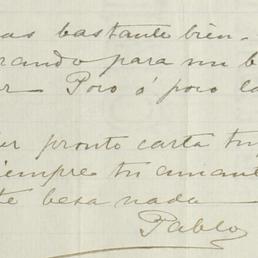 as bastante bien -
rando para un b
er Poco ó poco la
er pronto carta tu
iempre tu amant
te besa nada
Pablo